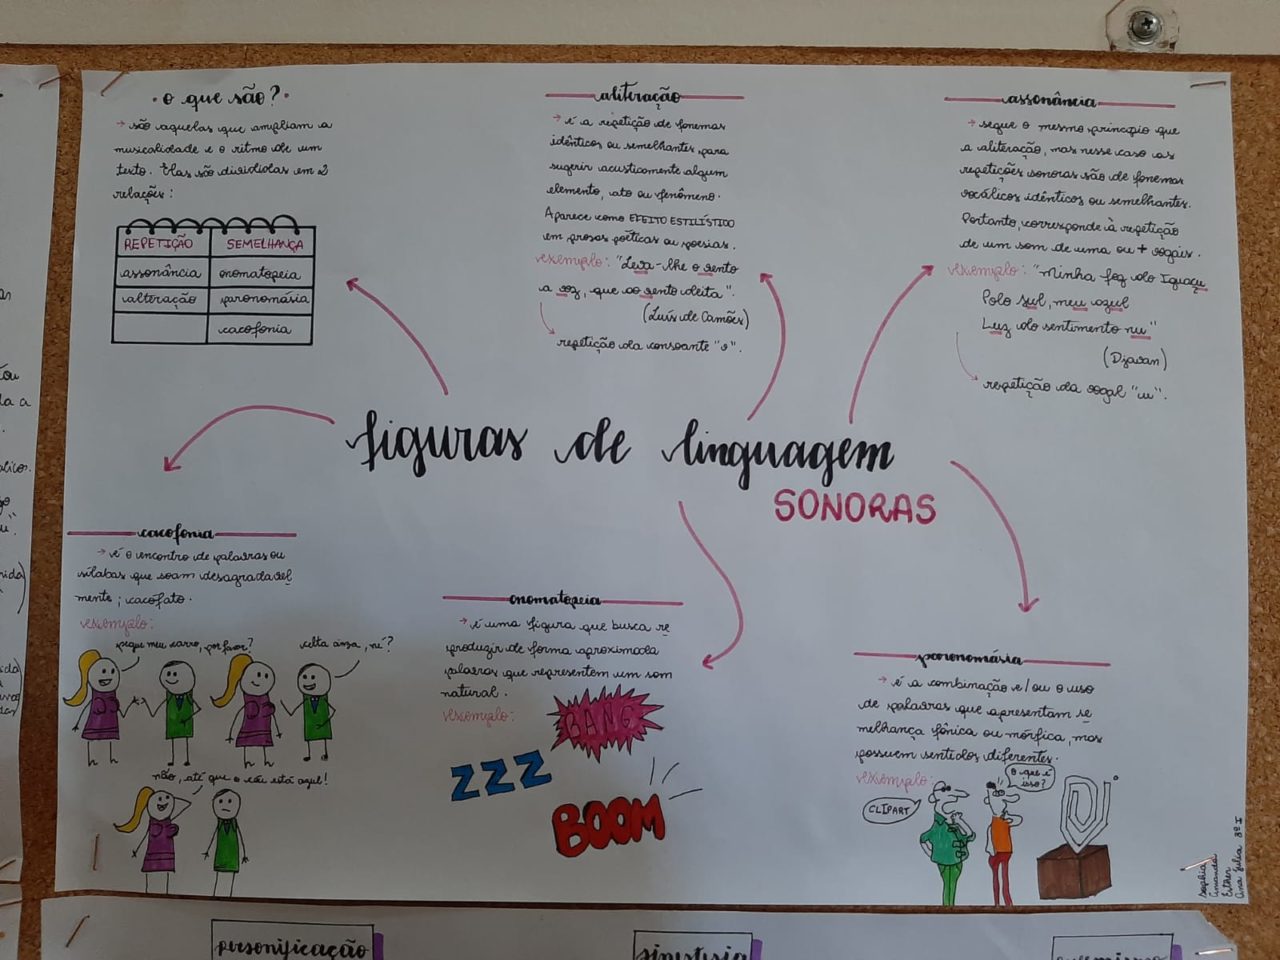 • o que são? •
→ são aquelas que ampliam a
musicalidade e o ritmo de um
texto. Elas são divididas em 2
relações:
REPETIÇÃO SEMELHANÇA
assonância onomatopeia
alteração paronomásia
cacofonia
aliteração
→ é a repetição de fonemas
idênticos ou semelhantes para
sugerir acusticamente algum
elemento, ato ou fenômeno.
Aparece como EFEITO ESTILÍSTICO
em prosas poéticas ou poesias.
exemplo: "Leva-lhe o vento
a voz, que ao vento deita".
(Luís de Camões)
repetição da consoante "v".
assonância
→ segue o mesmo princípio que
a aliteração, mas nesse caso as
repetições sonoras são de fonemas
vocálicos idênticos ou semelhantes.
Portanto, corresponde à repetição
de um som de uma ou + vogais.
exemplo: "Minha foz do Iguaçu
Polo sul, meu azul
Luz do sentimento nu"
(Djavan)
repetição da vogal "u".
figuras de linguagem
SONORAS
cacofonia
→ é o encontro de palavras ou
sílabas que soam desagradavel
mente; cacófato.
exemplo:
pegue meu carro, por favor?
celta cinza, né?
não, até que o céu está azul!
onomatopeia
→ é uma figura que busca re
produzir de forma aproximada
palavras que representem um som
natural.
exemplo:
BANG
ZZZ
BOOM
paronomásia
→ é a combinação e/ou o uso
de palavras que apresentam se
melhança fônica ou mórfica, mas
possuem sentidos diferentes.
exemplo:
CLIPART
O que é
isso?
Sophia
Amanda
Esther
Ana Julia 3º I
personificação
sinestesia